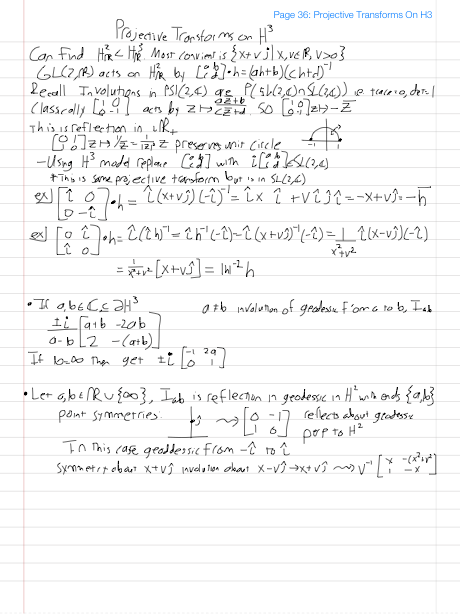 Page 36: Projective Transforms On H3
Projective Transforms on H³
Can find H²_ℝ < H³_ℝ. Most convient is {x+vĵ | x,v∈ℝ, v>0}
GL(2,ℝ) acts on H²_ℝ by [a b; c d]•h=(ah+b)(ch+d)⁻¹
Recall Involutions in PSL(2,ℂ) are P(sl(2,ℂ)∩SL(2,ℂ)) ie trace=0, det=1
Classically [1 0; 0 -1] acts by z↦ (az̄+b)/(cz̄+d) so [1 0; 0 -1]z↦ -z̄
This is reflection in iℝ₊
[0 1; 1 0]z↦ 1/z̄ = 1/|z|² z preserves unit circle -1 1
- Using H³ model replace [a b; c d] with î[a b; c d]∈SL(2,ℂ)
* This is same projective transform but is in SL(2,ℂ)
ex] [î 0; 0 -î]•h = î(x+vĵ)(-î)⁻¹ = îx î + vî ĵ î = -x+vĵ = -h̄
ex] [0 î; î 0]•h = î(îh)⁻¹ = îh⁻¹(-î) = î(x+vĵ)⁻¹(-î) = 1/(x²+v²) î(x-vĵ)(-î)
= 1/(x²+v²) [x+vĵ] = |h|⁻² h
• If a,b∈ℂ⊆∂H³ a≠b involution of geodesic from a to b, I_ab
±i/(a-b) [a+b -2ab; 2 -(a+b)]
If b=∞ then get ±i [-1 2a; 0 1]
• Let a,b∈ℝ∪{∞}, I_ab is reflection in geodesic in H² with ends {a,b}
point symmetries: ĵ ⇝ [0 -1; 1 0] reflects about geodesic
perp to H²
In this case geoddesic from -î to î
Symmetry about x+vĵ involution about x-vî→x+vî ⇝ v⁻¹ [x -(x²+v²); 1 -x]